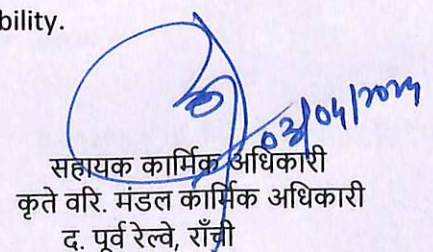 bility.
03/04/2024
सहायक कार्मिक अधिकारी
कृते वरि. मंडल कार्मिक अधिकारी
द. पूर्व रेल्वे, राँची